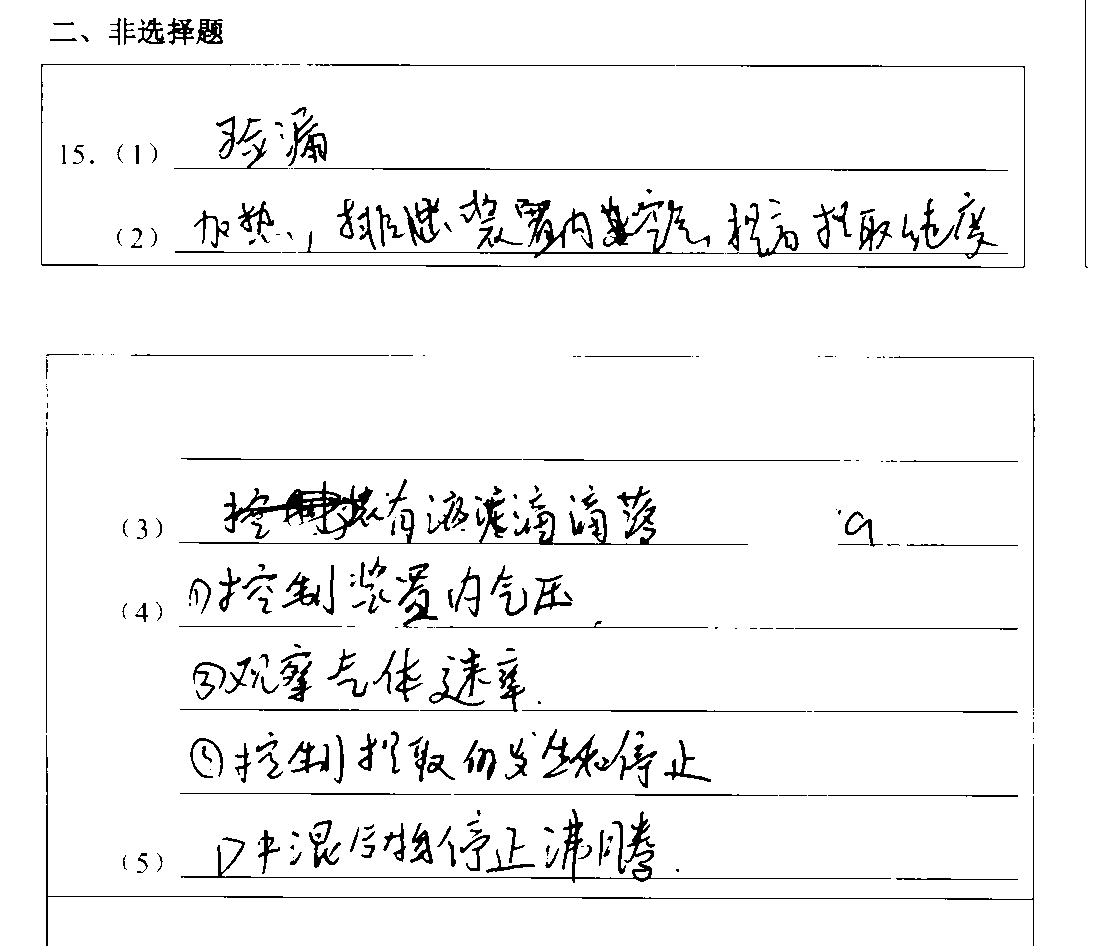 二、非选择题
15.（1） 验漏
（2） 加热，排进装置内空气，提高提取纯度
（3） 有液滴滴落 a
（4） ①控制装置内气压
③观察气体速率.
控制提取的发生和停止
（5） D中混合物停止沸腾.